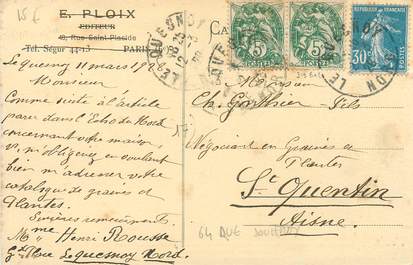 15 f
E. PLOIX
EDITEUR
48, Rue Saint-Placide
Tél. Ségur 44-13 PARIS
CA
LE QUESNOY
NORD
RÉPUBLIQUE FRANÇAISE
5
5
POSTES
30c
Le Quesnoy 11 mars 192
Monsieur
Comme suite à l'article
paru dans l'Echo du Nord
concernant votre maison,
m'obligerez en voulant
bien m'adresser votre
catalogue de graines et
Plantes.
Sincères remerciements.
Mme Henri Rousse
Le Quesnoy Nord.
Monsieur
Ch. Gonthier Fils
Négociant en Graines et
Plantes
St Quentin
Aisne
64 RUE